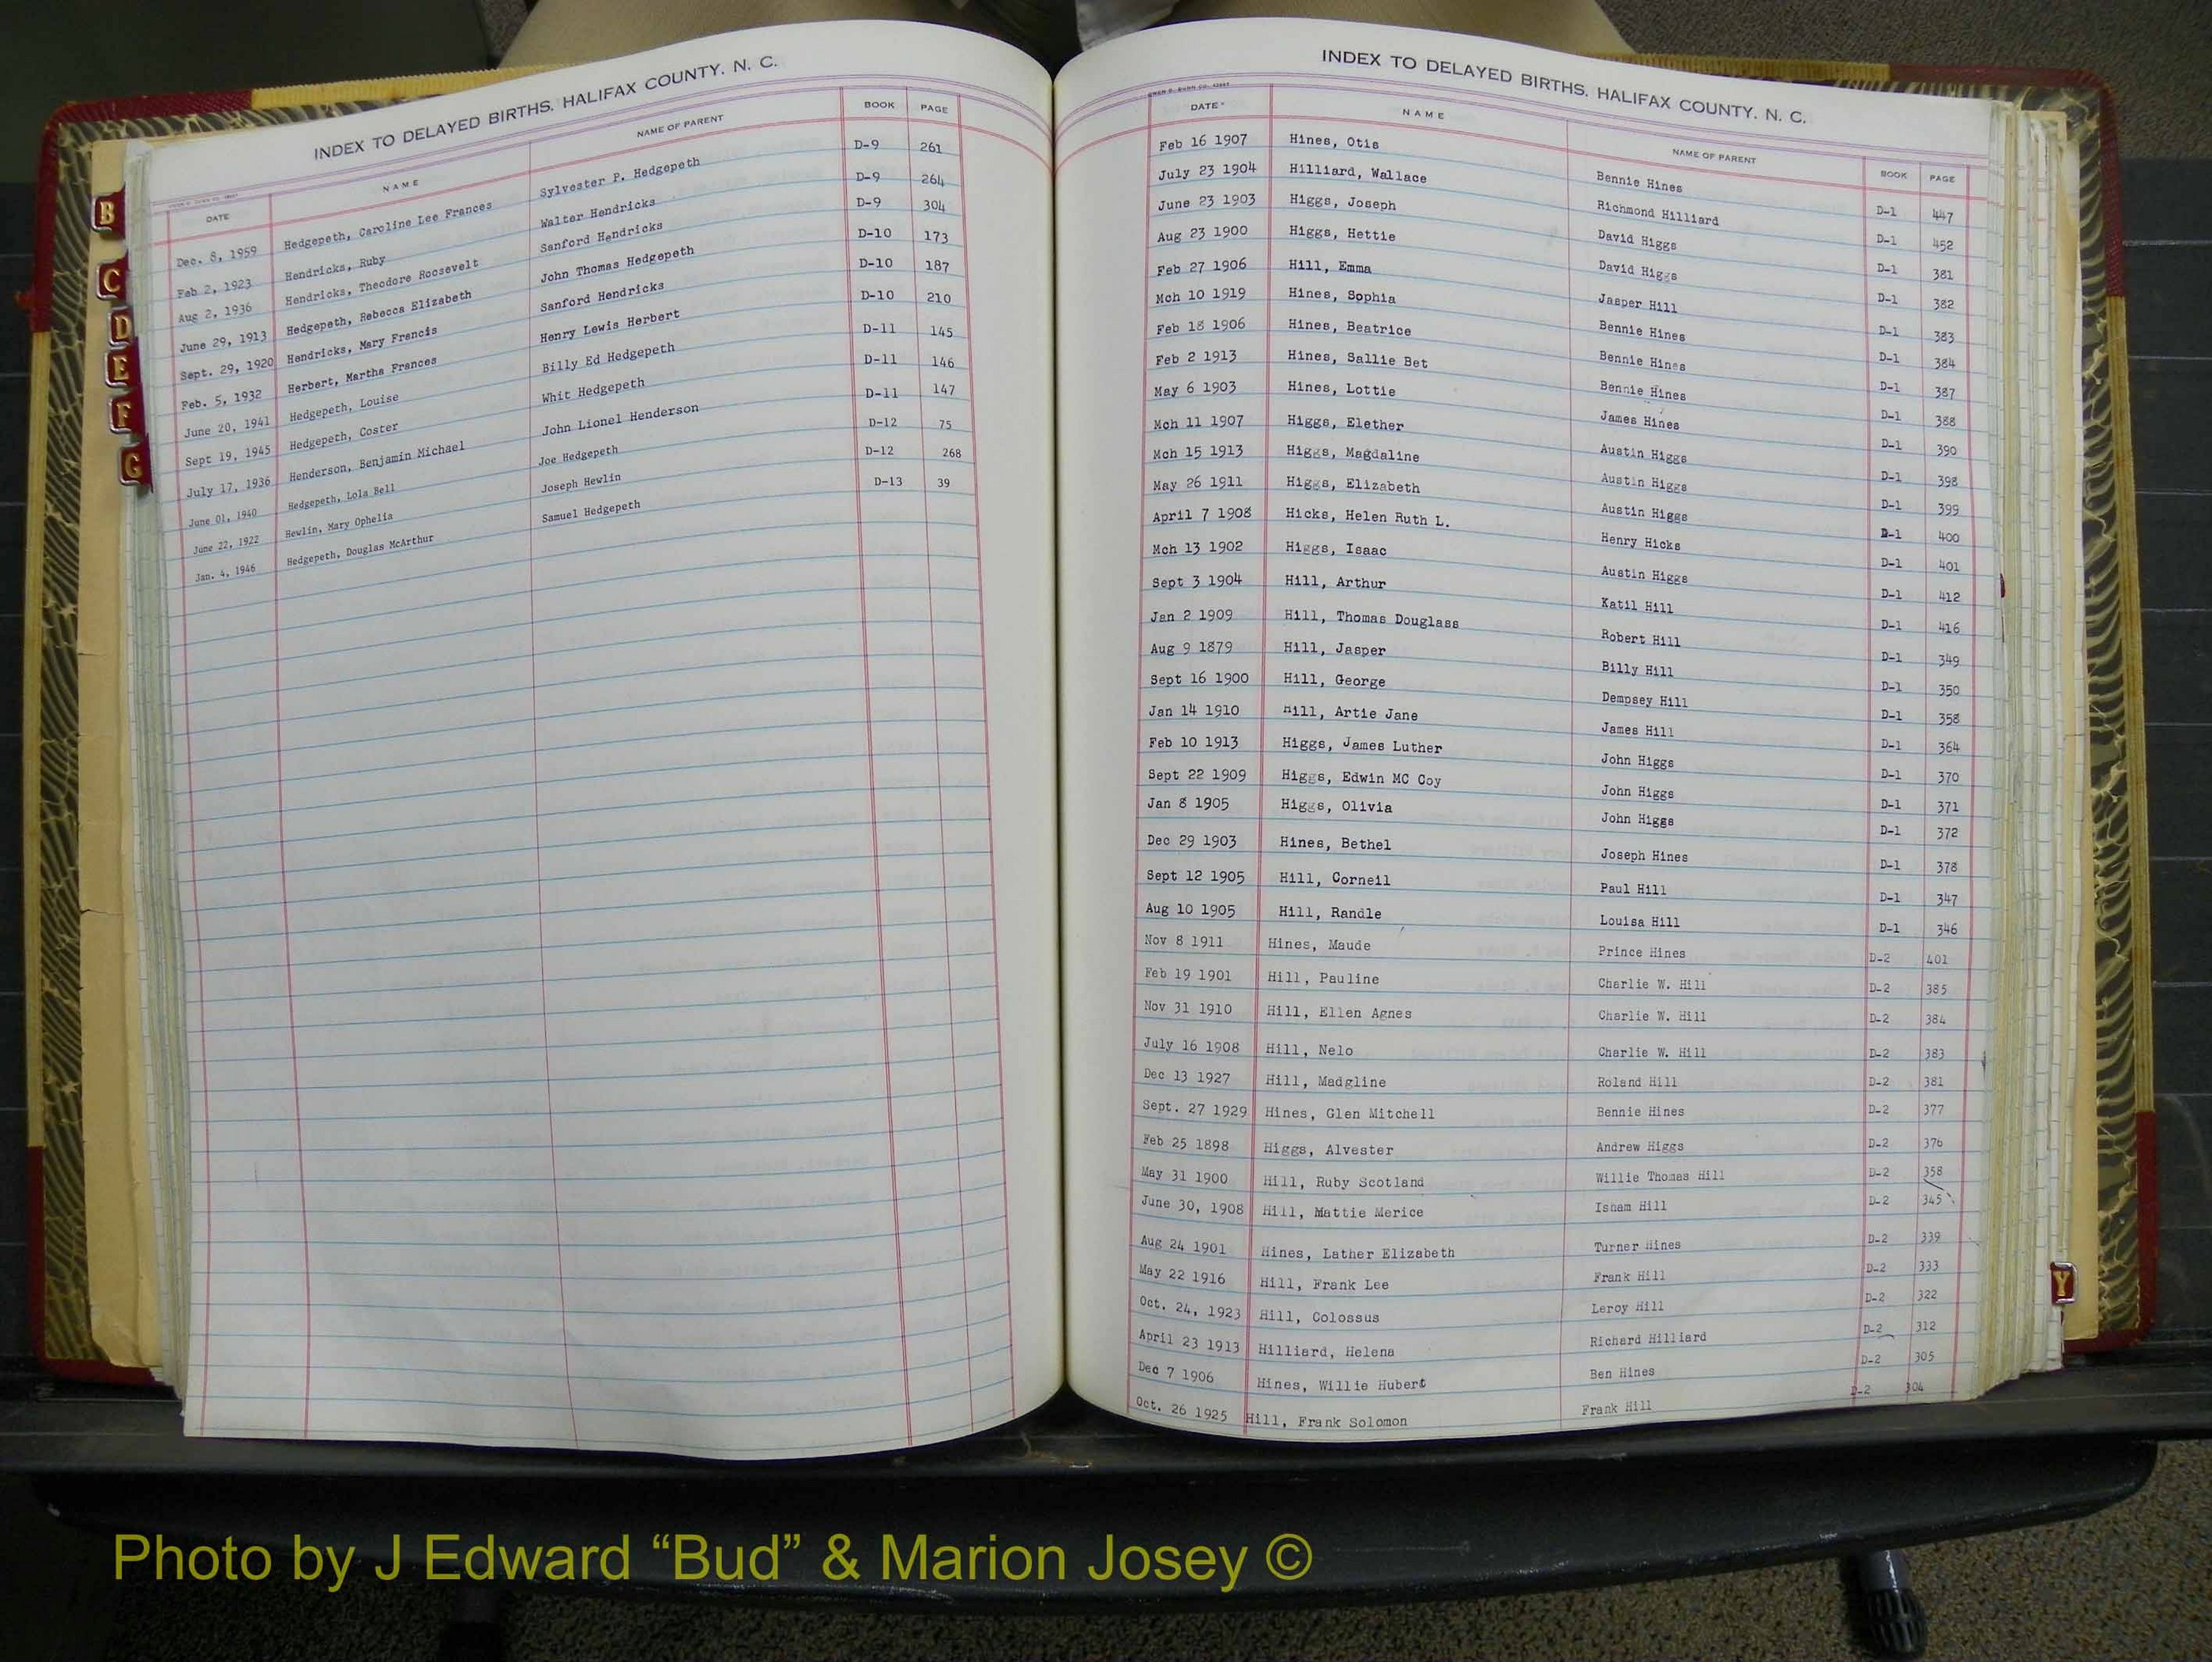 INDEX TO DELAYED BIRTHS. HALIFAX COUNTY. N. C.
DATE NAME NAME OF PARENT BOOK PAGE
Dec. 8, 1959 Hedgepeth, Caroline Lee Frances Sylvester P. Hedgepeth D-9 261
Feb 2, 1923 Hendricks, Ruby Walter Hendricks D-9 264
Aug 2, 1936 Hendricks, Theodore Roosevelt Sanford Hendricks D-9 304
June 29, 1913 Hedgepeth, Rebecca Elizabeth John Thomas Hedgepeth D-10 173
Sept. 29, 1920 Hendricks, Mary Francis Sanford Hendricks D-10 187
Feb. 5, 1932 Herbert, Martha Frances Henry Lewis Herbert D-10 210
June 20, 1941 Hedgepeth, Louise Billy Ed Hedgepeth D-11 145
Sept 19, 1945 Hedgepeth, Coster Whit Hedgepeth D-11 146
July 17, 1936 Henderson, Benjamin Michael John Lionel Henderson D-11 147
June 01, 1940 Hedgepeth, Lola Bell Joe Hedgepeth D-12 75
June 22, 1922 Hewlin, Mary Ophelia Joseph Hewlin D-12 268
Jan. 4, 1946 Hedgepeth, Douglas McArthur Samuel Hedgepeth D-13 39
B
C
D
E
F
G
INDEX TO DELAYED BIRTHS. HALIFAX COUNTY. N. C.
DATE NAME NAME OF PARENT BOOK PAGE
Feb 16 1907 Hines, Otis Bennie Hines D-1 447
July 23 1904 Hilliard, Wallace Richmond Hilliard D-1 452
June 23 1903 Higgs, Joseph David Higgs D-1 381
Aug 23 1900 Higgs, Hettie David Higgs D-1 382
Feb 27 1906 Hill, Emma Jasper Hill D-1 383
Mch 10 1919 Hines, Sophia Bennie Hines D-1 384
Feb 18 1906 Hines, Beatrice Bennie Hines D-1 387
Feb 2 1913 Hines, Sallie Bet Bennie Hines D-1 388
May 6 1903 Hines, Lottie James Hines D-1 390
Mch 11 1907 Higgs, Elether Austin Higgs D-1 398
Mch 15 1913 Higgs, Magdaline Austin Higgs D-1 399
May 26 1911 Higgs, Elizabeth Austin Higgs D-1 400
April 7 1908 Hicks, Helen Ruth L. Henry Hicks D-1 401
Mch 13 1902 Higgs, Isaac Austin Higgs D-1 412
Sept 3 1904 Hill, Arthur Katil Hill D-1 416
Jan 2 1909 Hill, Thomas Douglass Robert Hill D-1 349
Aug 9 1879 Hill, Jasper Billy Hill D-1 350
Sept 16 1900 Hill, George Dempsey Hill D-1 358
Jan 14 1910 Hill, Artie Jane James Hill D-1 364
Feb 10 1913 Higgs, James Luther John Higgs D-1 370
Sept 22 1909 Higgs, Edwin MC Coy John Higgs D-1 371
Jan 8 1905 Higgs, Olivia John Higgs D-1 372
Dec 29 1903 Hines, Bethel Joseph Hines D-1 378
Sept 12 1905 Hill, Corneil Paul Hill D-1 347
Aug 10 1905 Hill, Randle Louisa Hill D-1 346
Nov 8 1911 Hines, Maude Prince Hines D-2 401
Feb 19 1901 Hill, Pauline Charlie W. Hill D-2 385
Nov 31 1910 Hill, Ellen Agnes Charlie W. Hill D-2 384
July 16 1908 Hill, Nelo Charlie W. Hill D-2 383
Dec 13 1927 Hill, Madgline Roland Hill D-2 381
Sept. 27 1929 Hines, Glen Mitchell Bennie Hines D-2 377
Feb 25 1898 Higgs, Alvester Andrew Higgs D-2 376
May 31 1900 Hill, Ruby Scotland Willie Thomas Hill D-2 358
June 30, 1908 Hill, Mattie Merice Isham Hill D-2 345
Aug 24 1901 Hines, Lather Elizabeth Turner Hines D-2 339
May 22 1916 Hill, Frank Lee Frank Hill D-2 333
Oct. 24, 1923 Hill, Colossus Leroy Hill D-2 322
April 23 1913 Hilliard, Helena Richard Hilliard D-2 312
Dec 7 1906 Hines, Willie Hubert Ben Hines D-2 305
Oct. 26 1925 Hill, Frank Solomon Frank Hill D-2 304
Y
Photo by J Edward “Bud” & Marion Josey ©